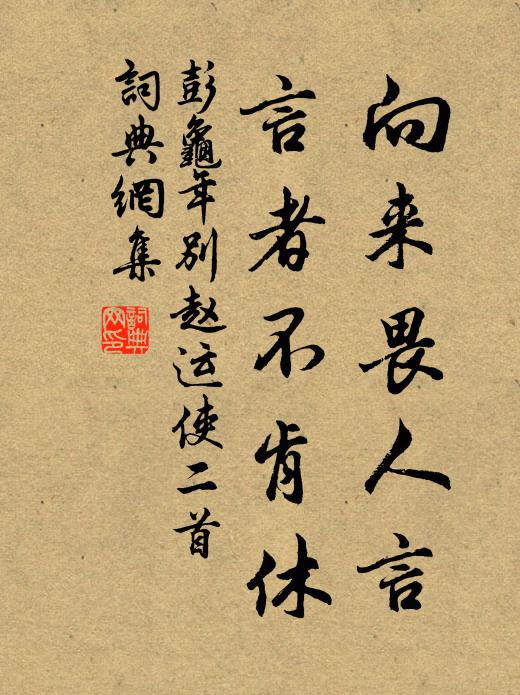 向来畏人言
言者不肯休
彭龜年别赵运使二首
詞典網集
詞典
网印